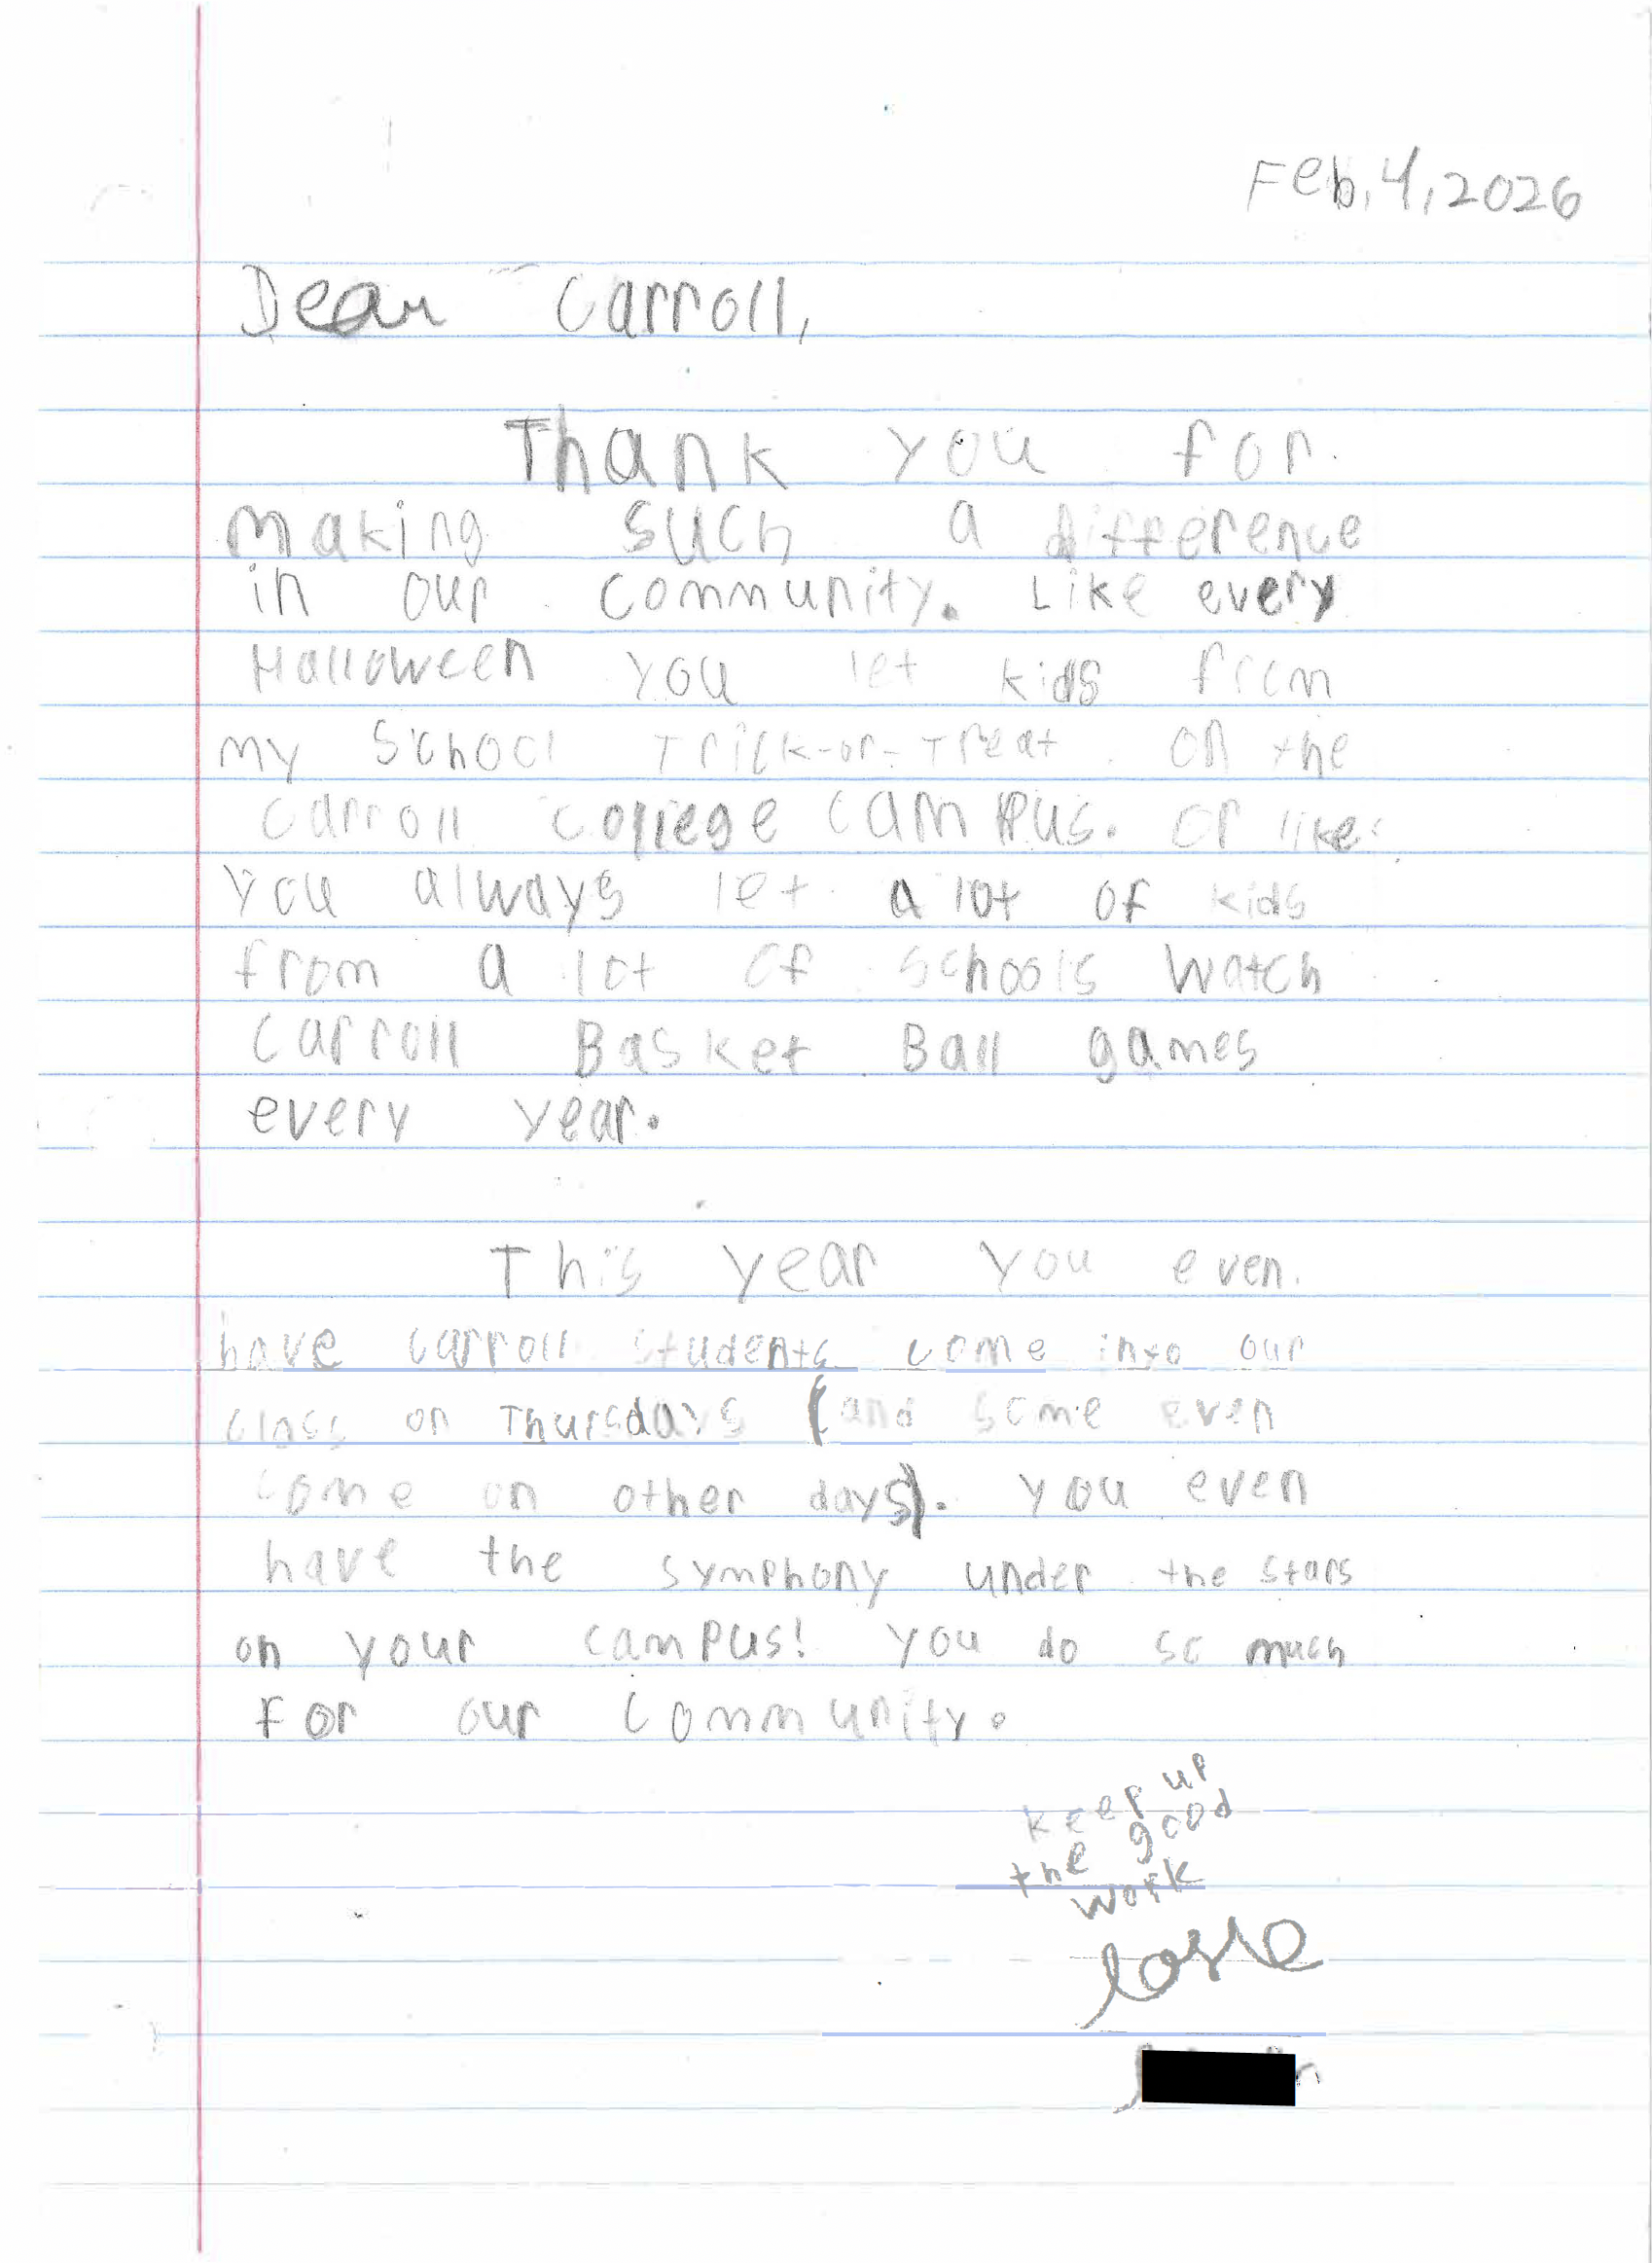 Feb, 4, 2026
Dear Carroll,
Thank you for
making such a difference
in our community. Like every
Halloween you let kids from
my School Trick-or-Treat on the
Carroll college campus. Or like
you always let a lot of kids
from a lot of schools watch
Carroll Basket Ball games
every year.
This year you even
have Carroll students come into our
class on Thursdays (and some even
come on other days). You even
have the symphony under the stars
on your campus! You do so much
for our community.
Keep up
the good
work